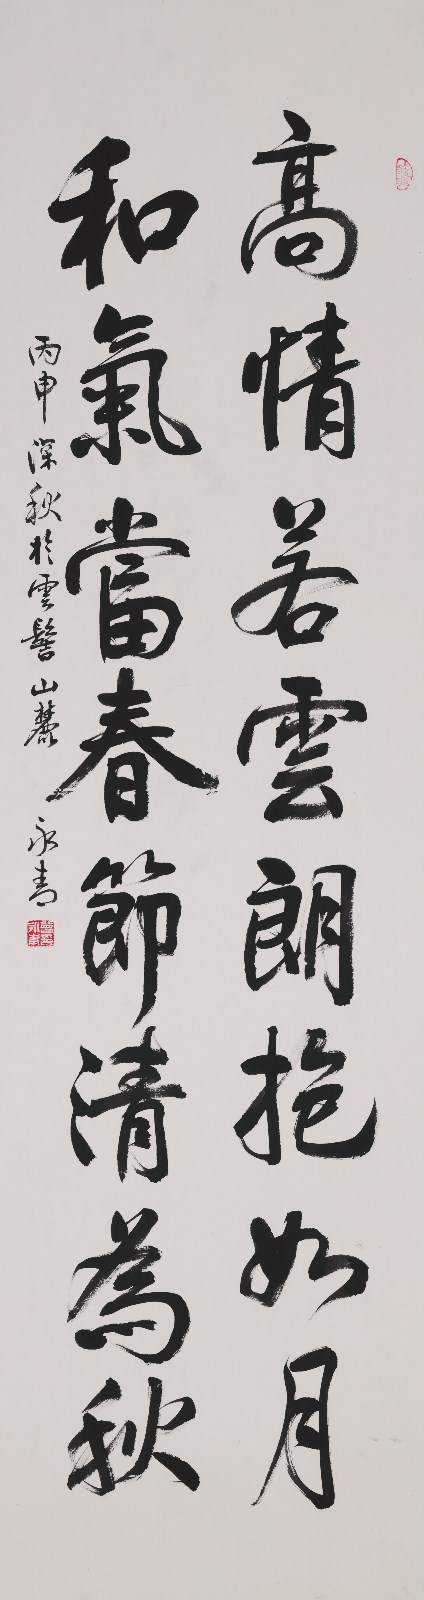 高情若雲朗抱如月
和氣當春節清為秋
丙申深秋於雲髻山麓 永青